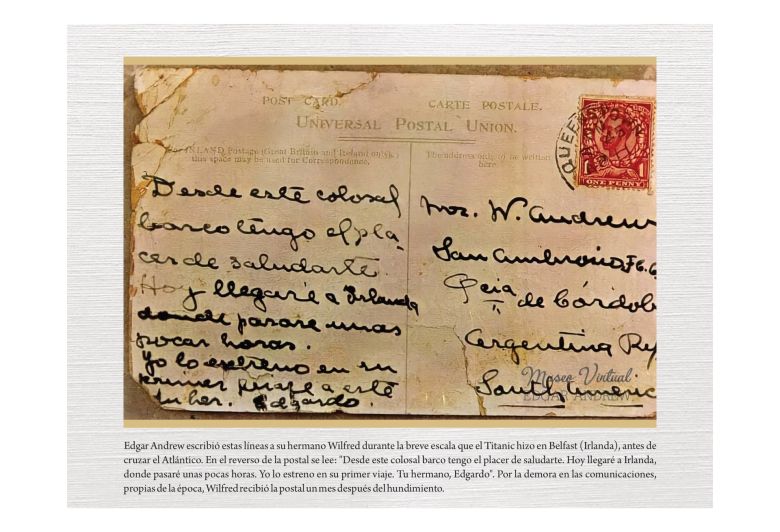 POST CARD.
CARTE POSTALE.
UNIVERSAL POSTAL UNION.
For INLAND Postage (Great Britain and Ireland only)
this space may be used for Correspondence.
The address only to be written
here
QUEENSTOWN
1 1
ONE PENNY
Desde este colosal
barco tengo el pla_
cer de saludarte.
Hoy llegaré a Irlanda
donde pasare unas
pocas horas.
Yo lo estreno en su
primer viaje a este
tu her. Edgardo.
Mrs. W. Andrew
San Ambrosio, F.C.C.
Pcia de Córdob
Argentina Rep
South Americ
Museo Virtual
EDGAR ANDREW
Edgar Andrew escribió estas líneas a su hermano Wilfred durante la breve escala que el Titanic hizo en Belfast (Irlanda), antes de
cruzar el Atlántico. En el reverso de la postal se lee: "Desde este colosal barco tengo el placer de saludarte. Hoy llegaré a Irlanda,
donde pasaré unas pocas horas. Yo lo estreno en su primer viaje. Tu hermano, Edgardo". Por la demora en las comunicaciones,
propias de la época, Wilfred recibió la postal un mes después del hundimiento.